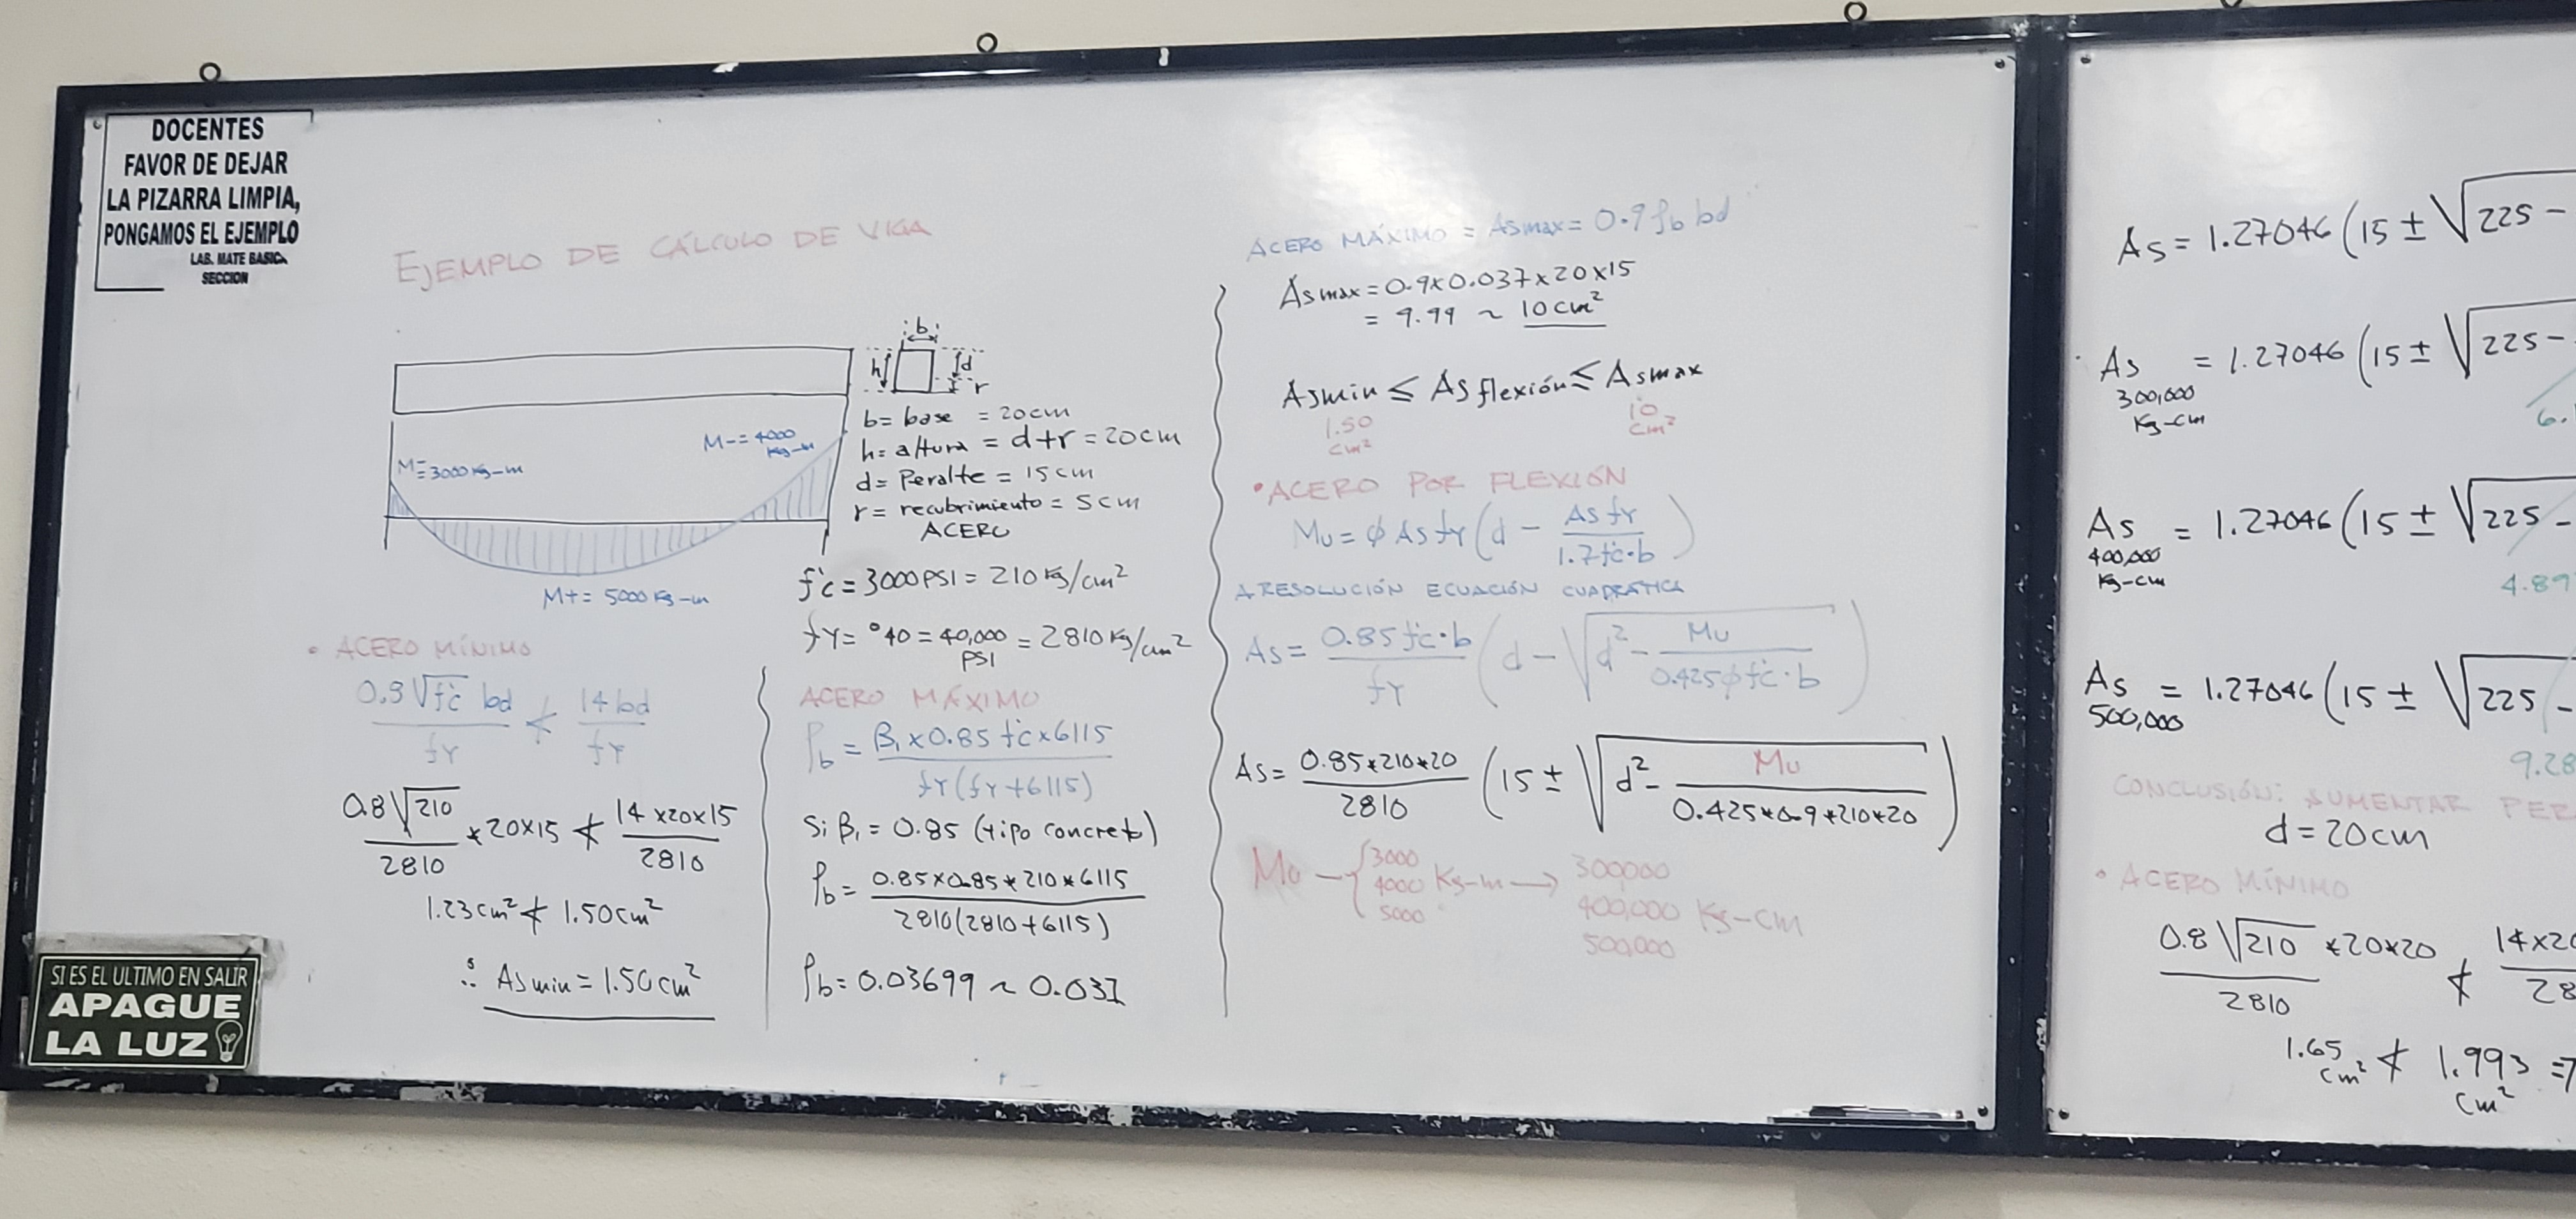 DOCENTES
FAVOR DE DEJAR
LA PIZARRA LIMPIA,
PONGAMOS EL EJEMPLO
LAB. MATE BASICA
SECCION
EJEMPLO DE CÁLCULO DE VIGA
b
h d
r
M-=3000 Kg-m
M-=4000 Kg-m
M+= 5000 Kg-m
b= base = 20cm
h= altura = d+r = 20cm
d= Peralte = 15cm
r= recubrimiento = 5cm
ACERO
f'c = 3000PSI = 210 Kg/cm²
fy= °40 = 40,000 PSI = 2810 Kg/cm²
• ACERO MÍNIMO
0.8√f'c bd / fy ≮ 14bd / fy
0.8√210 / 2810 * 20x15 ≮ 14x20x15 / 2810
1.23cm² ≮ 1.50cm²
∴ Asmin = 1.50cm²
SI ES EL ULTIMO EN SALIR
APAGUE
LA LUZ
ACERO MÁXIMO
ρb = β₁x0.85 f'cx6115 / fy(fy+6115)
Si β₁ = 0.85 (tipo concreto)
ρb= 0.85x0.85*210*6115 / 2810(2810+6115)
ρb= 0.03699 ~ 0.037
ACERO MÁXIMO = Asmax= 0.9ρb bd
Asmax = 0.9x0.037x20x15
= 9.99 ~ 10cm²
Asmin ≤ As flexión ≤ Asmax
1.50 cm² 10 cm²
• ACERO POR FLEXIÓN
Mu= φ As fy (d - As fy / 1.7f'c·b)
RESOLUCIÓN ECUACIÓN CUADRÁTICA
As= 0.85f'c·b / fy (d - √d² - Mu / 0.425φf'c·b)
As= 0.85*210*20 / 2810 (15 ± √d² - Mu / 0.425*0.9*210*20)
Mu — { 3000 4000 5000 Kg-m → 300,000 400,000 500,000 Kg-cm
As= 1.27046 (15 ± √225 -
As 300,000 Kg-cm = 1.27046 (15 ± √225 -
6.
As 400,000 Kg-cm = 1.27046 (15 ± √225 -
4.89
As 500,000 = 1.27046 (15 ± √225 -
9.28
CONCLUSIÓN: AUMENTAR
d = 20cm
• ACERO MÍNIMO
0.8√210 *20*20 / 2810 ≮ 14x20 / 28
1.65 cm² ≮ 1.993 cm² =>